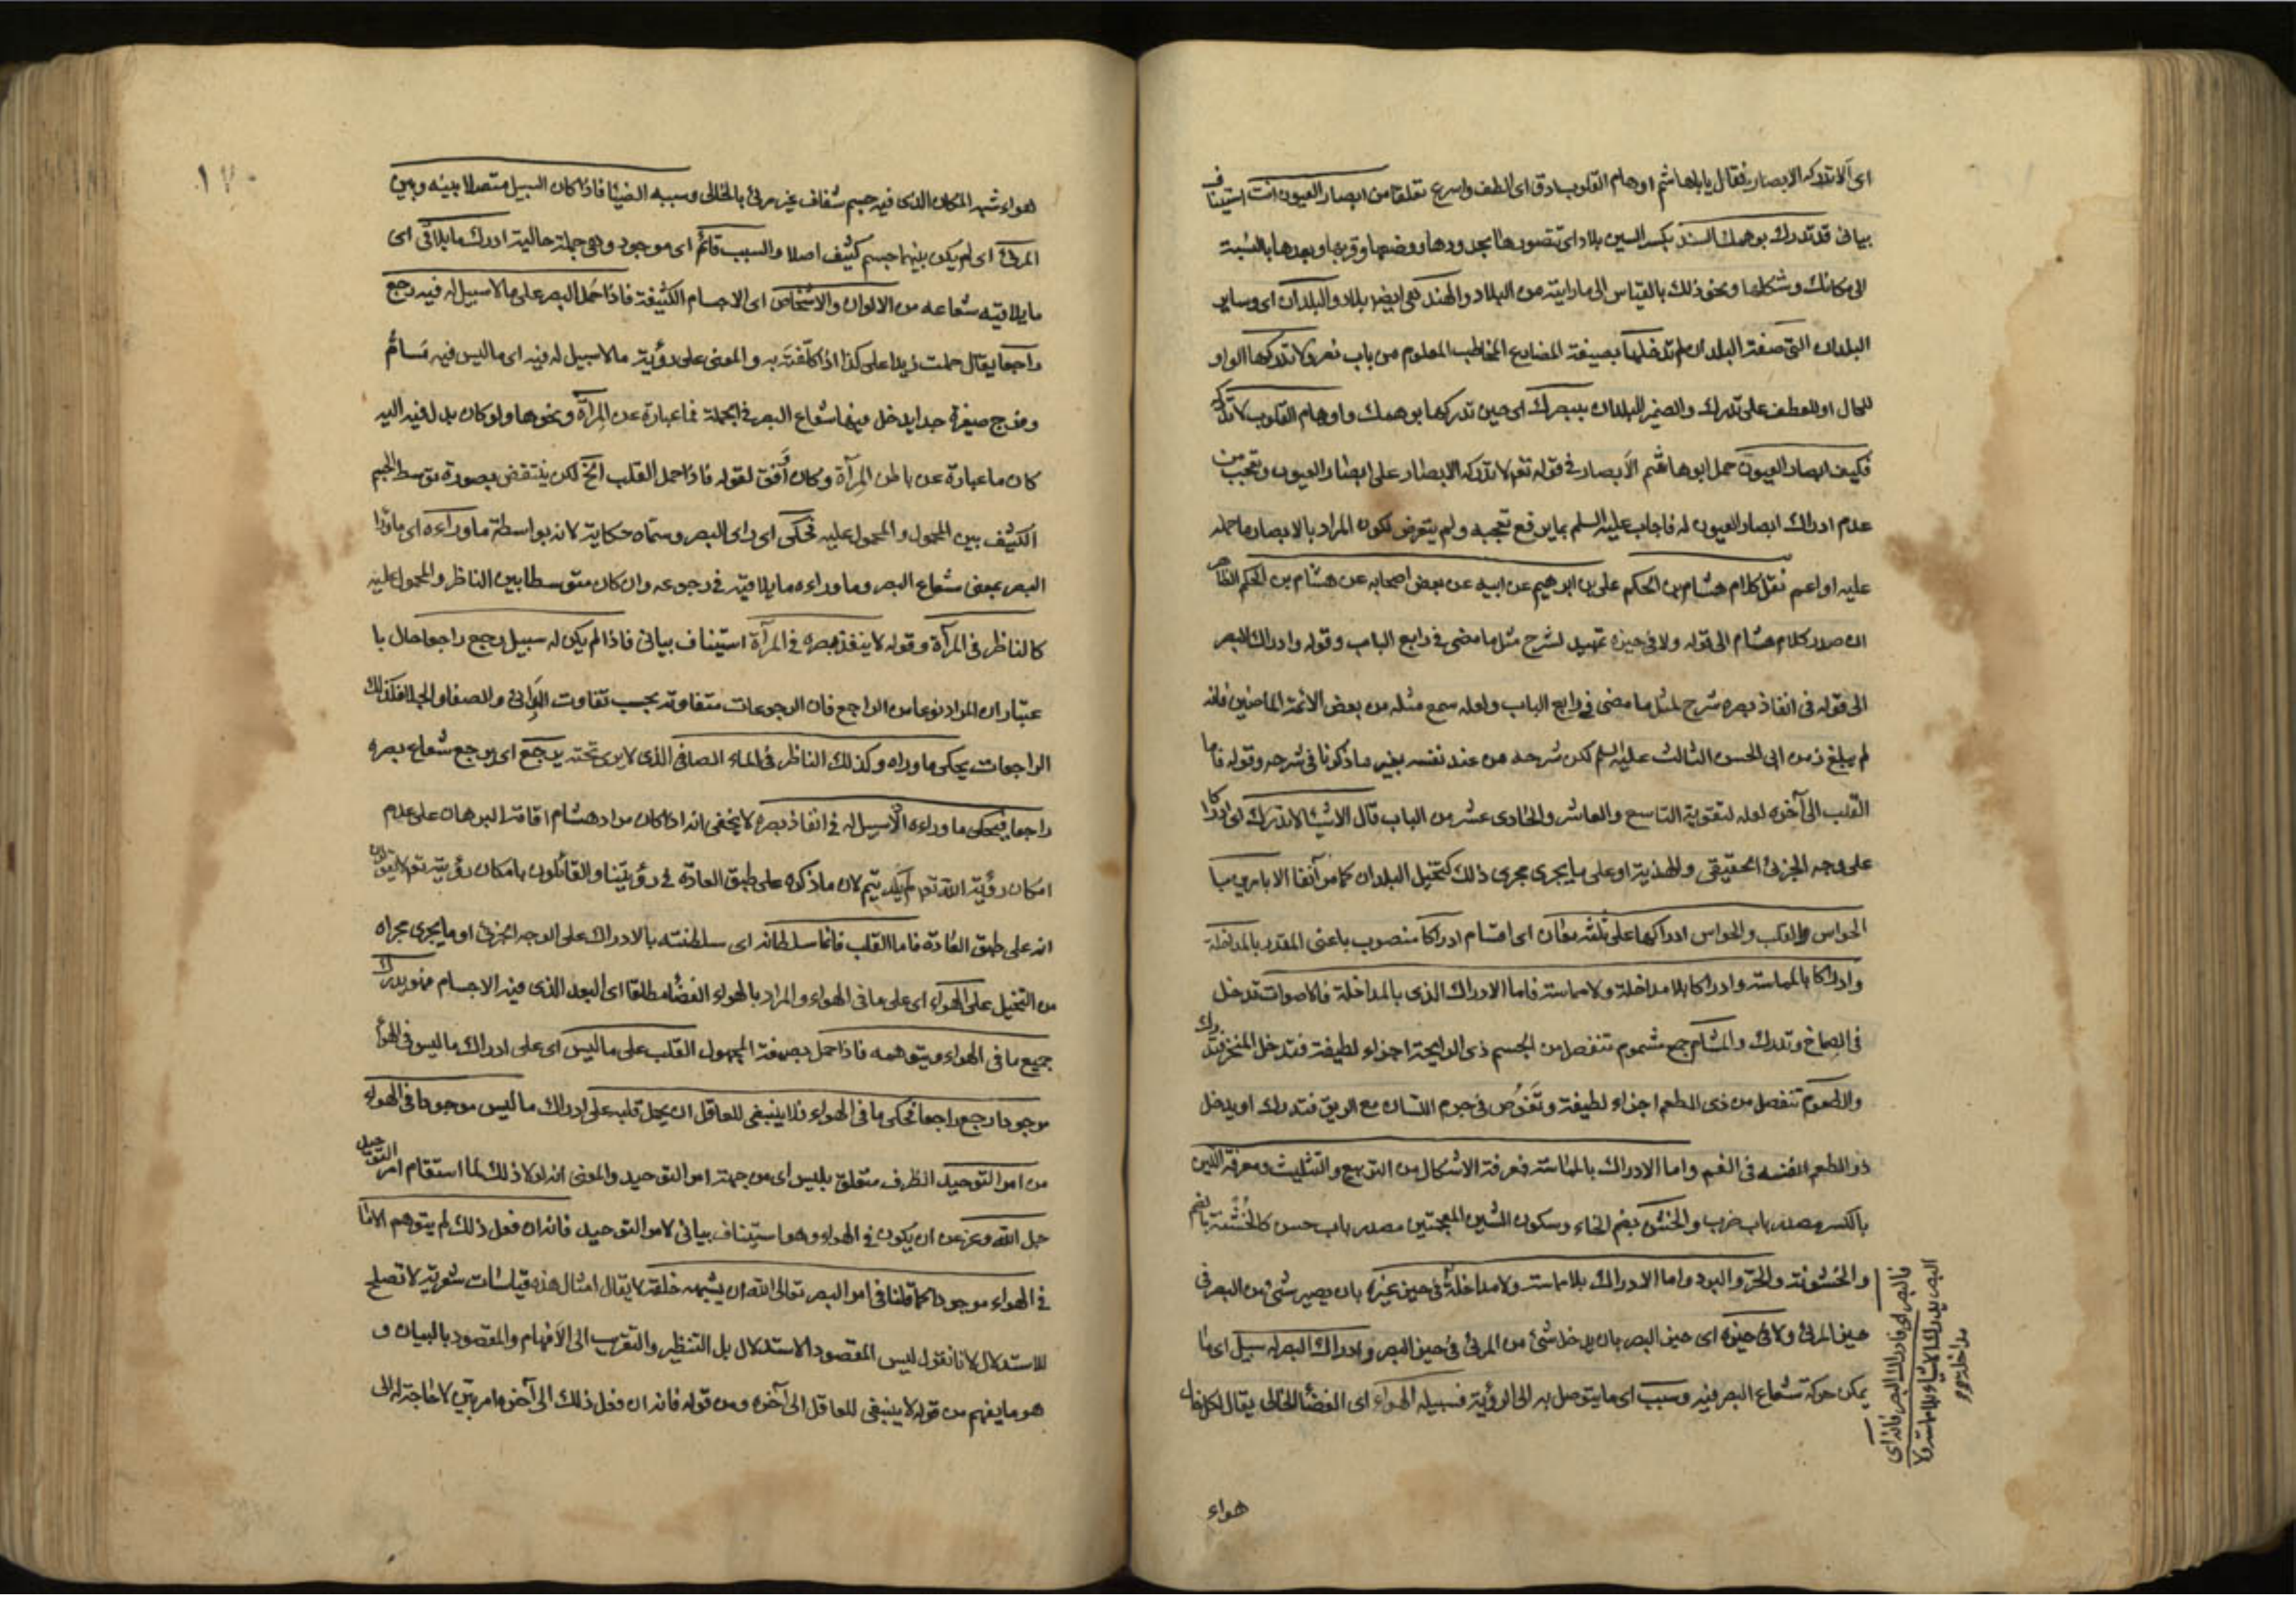 اى آلا تدركه الابصار فقال يا باهاشم اوهام القلوب ادق اى الطف واسرع تعلقا من ابصار العيون انت استيناف
بيانى قد تدرك بوهمك السند بكسر السين بلاد اى تتصورها بحدودها ووضعها وقربها وبعدها بالنسبة
الى مكانك وشكلها ونحو ذلك بالقياس الى ما رايته من البلاد والهند هى ايضا بلاد والبلدان اى وساير
البلدان التى صفة البلدان لم تدخلها بصيغة المضارع المخاطب المعلوم من باب نصر ولا تدركها الواو
للحال او للعطف على تدرك والضمير للبلدان ببصرك اى حين تدركها بوهمك واوهام القلوب لا تدركه
فكيف ابصار العيون حمل ابو هاشم الابصار فى قوله تعم لا تدركه الابصار على ابصار العيون وتعجب من
عدم ادراك ابصار العيون له فاجاب عليه السلم بما يرفع تعجبه ولم يتعرض لكون المراد بالابصار ما حمله
عليه او اعم نقل كلام هشام بن الحكم على بن ابرهيم عن ابيه عن بعض اصحابه عن هشام بن الحكم الظاهر
ان صدر كلام هشام الى قوله ولا فى حيزه تمهيد لشرح مثل ما مضى فى رابع الباب وقوله وادراك البصر
الى قوله فى انفاذ بصره شرح لمثل ما مضى فى رابع الباب ولعله سمع مثله من بعض الائمة الماضين فانه
لم يبلغ زمن ابى الحسن الثالث عليه السلم لكن شرحه من عند نفسه بغير ما ذكرنا فى شرحه وقوله فاما
القلب الى آخره لعله لتقوية التاسع والعاشر والحادى عشر من الباب قال الاشيا لا تدرك اى ادراكا
على وجه الجزئى الحقيقى والهذية او على ما يجرى مجرى ذلك كتخيل البلدان كما مر آنفا الا بامرين با
الحواس والقلب والحواس ادراكها على ثلثة معان اى اقسام ادراكا منصوب باعنى المقدر بالمداخلة
وادراكا بالمماسة وادراكا بلا مداخلة ولا مماسة فاما الادراك الذى بالمداخلة فالاصوات تدخل
فى الصماخ وتدرك والمشام جمع مشموم تنفصل من الجسم ذى الرايحة اجزاء لطيفة فتدخل المنخر وتدرك
والطعوم تنفصل من ذى الطعم اجزاء لطيفة وتغوص فى جرم اللسان مع الريق فتدرك او يدخل
ذو الطعم نفسه فى الفم واما الادراك بالمماسة فمعرفة الاشكال من التربيع والتثليث ومعرفة اللين
بالكسر مصدر باب ضرب والخشن بضم الخاء وسكون الشين المعجمتين مصدر باب حسن كالخشنة بالضم
والخشونة والحر والبرد واما الادراك بلا مماسة ولا مداخلة فى حيز غيره بان يصير شئ من البصر فى
حيز المرئى ولا فى حيزه اى حيز البصر بان يدخل شئ من المرئى فى حيز البصر وادراك البصر له سبيل اى ما
يمكن حركة شعاع البصر فيه وسبب اى ما يتوصل به الى الرؤية فسبيله الهواء اى الفضا الخالى يقال لكل خال
فالبصر اى فادراك البصر فانه اى
البصر يدرك الاشياء بلا مماسة ولا
مداخلة
هواء
١٧٠
هواء شبه المكان الذى فيه جسم شفاف غير مرئى بالخالى وسببه الضيا فاذا كان السبيل متصلا بينه وبين
المرئى اى لم يكن بينهما جسم كثيف اصلا والسبب قائم اى موجود وهى جملة حالية ادرك ما يلاقى اى
ما يلاقيه شعاعه من الالوان والاشخاص اى الاجسام الكثيفة فاذا حمل البصر على ما لا سبيل له فيه رجع
راجعا يقال حملت زيدا على كذا اذا كلفته به والمعنى على رؤية ما لا سبيل له فيه اى ما ليس فيه مسام
وفرج صغيرة جدا يدخل فيها شعاع البصر فى الجملة فما عبارة عن المرآة ونحوها ولو كان بدل فيه اليه
كان ما عبارة عن باطن المرآة وكان اوفق لقوله فاذا حمل القلب الخ لكن ينتقض بصورة توسط الجسم
الكثيف بين المحمول والمحمول عليه فحكى اى راى البصر وسماه حكاية لانه بواسطة ما وراءه اى ما ورا
البصر بمعنى شعاع البصر وما وراءه ما يلاقيه فى رجوعه وان كان متوسطا بين الناظر والمحمول عليه
كالناظر فى المرآة وقوله لا ينفذ بصره فى المرآة استيناف بيانى فاذا لم يكن له سبيل رجع راجعا حال با
عتبار ان المراد نوعا من الراجع فان الرجوعات متفاوتة بحسب تفاوت المرائى والصفا والجلا فكذلك
الراجعات يحكى ما وراه وكذلك الناظر فى الماء الصافى الذى لا يرى تحته يرجع اى يرجع شعاع بصره
راجعا فيحكى ما وراءه اذ لا سبيل له فى انفاذ بصره لا يخفى انه اذا كان مراد هشام اقامة البرهان على عدم
امكان رؤية الله تعم لم يكد يتم لان ما ذكره على طبق العادة فى رؤيتنا والقائلون بامكان رؤيته تعم لا يقولون
انه على طبق العادة فاما القلب فانما سلطانه اى سلطنته بالادراك على الوجه الجزئى او ما يجرى مجراه
من التخيل على الهواء اى على ما فى الهواء والمراد بالهواء الفضا مطلقا اى البعد الذى فيه الاجسام فهو يدرك
جميع ما فى الهواء ويتوهمه فاذا حمل بصيغة المجهول القلب على ما ليس اى على ادراك ما ليس فى الهوا
موجودا رجع راجعا فحكى ما فى الهواء فلا ينبغى للعاقل ان يحمل قلبه على ادراك ما ليس موجودا فى الهواء
من امر التوحيد الظرف متعلق بليس اى من جهة امر التوحيد والمعنى انه لولا ذلك لما استقام امر التوحيد
جل الله وعز عن ان يكون فى الهواء وهو استيناف بيانى لامر التوحيد فانه ان فعل ذلك لم يتوهم الا ما
فى الهواء موجود كما قلنا فى امر البصر تعالى الله ان يشبهه خلقه لا يقال امثال هذه قياسات شعرية لا تصلح
للاستدلال لانا نقول ليس المقصود الاستدلال بل التنظير والتقريب الى الافهام والمقصود بالبيان و
هو ما يفهم من قوله لا ينبغى للعاقل الى آخره ومن قوله فانه ان فعل ذلك الى آخره امر بين لا حاجة له الى